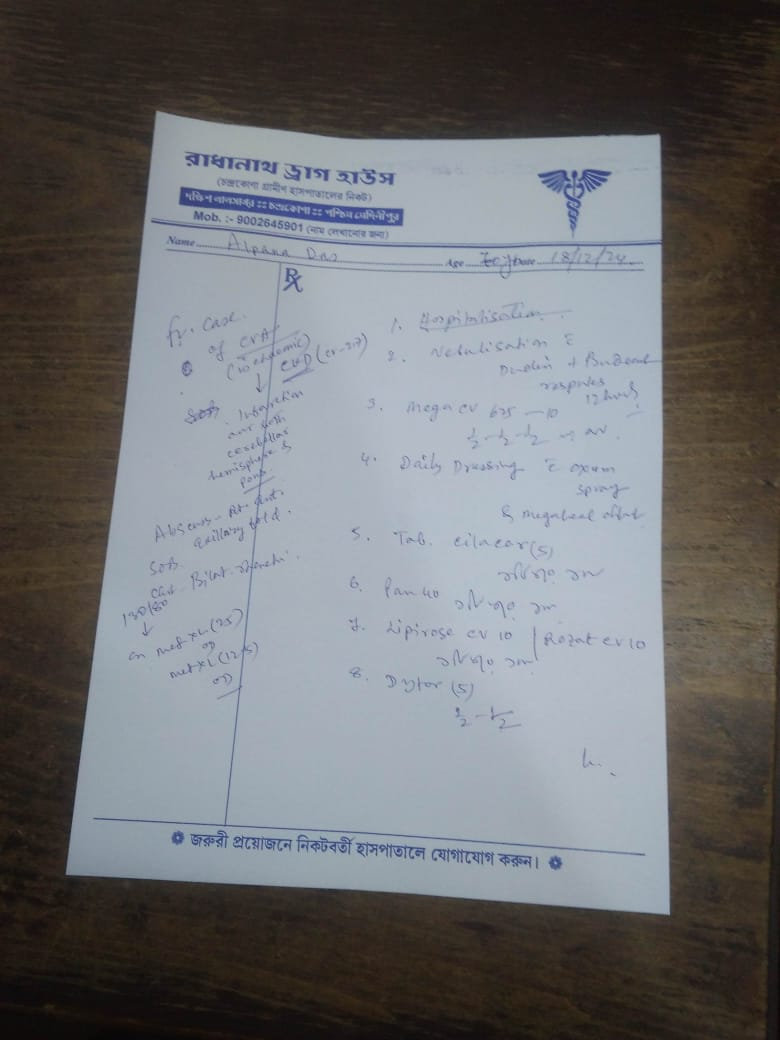 রাধানাথ ড্রাগ হাউস
(চন্দ্রকোণা গ্রামীণ হাসপাতালের নিকট)
দক্ষিণ লালসাগর :: চন্দ্রকোণা :: পশ্চিম মেদিনীপুর
Mob. :- 9002645901 (নাম লেখানোর জন্য)
Name Alpana Das Age Date 18/12/24
Rx
fv. case
of CVA
(ischaemic)
↓ CKD (cr-2.17)
SOB. Infarction
cerebellar
hemisphere &
pons
Abscess - Rt. ant.
axillary fold.
SOB
Chst - Bilat. rhonchi.
130/80
↓
on met XL (25)
OD
met XL (12.5)
OD
1. Hospitalisation.
2. Nebulisation c̄
Duolin +
respules
12 hourly
3. Mega CV 625 — 10
½ - ½ - ½
4. Daily Dressing c̄ oxum
spray
& megaheal
5. Tab. cilacar (5)
6. Pan 40
7. Lipirose CV 10 / Rozat CV 10
8. Dytor (5)
½ - ½
জরুরী প্রয়োজনে নিকটবর্তী হাসপাতালে যোগাযোগ করুন।